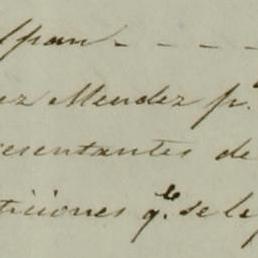 lpan - - - -
ez Mendez p.
esentantes de
ticiones q.e se le